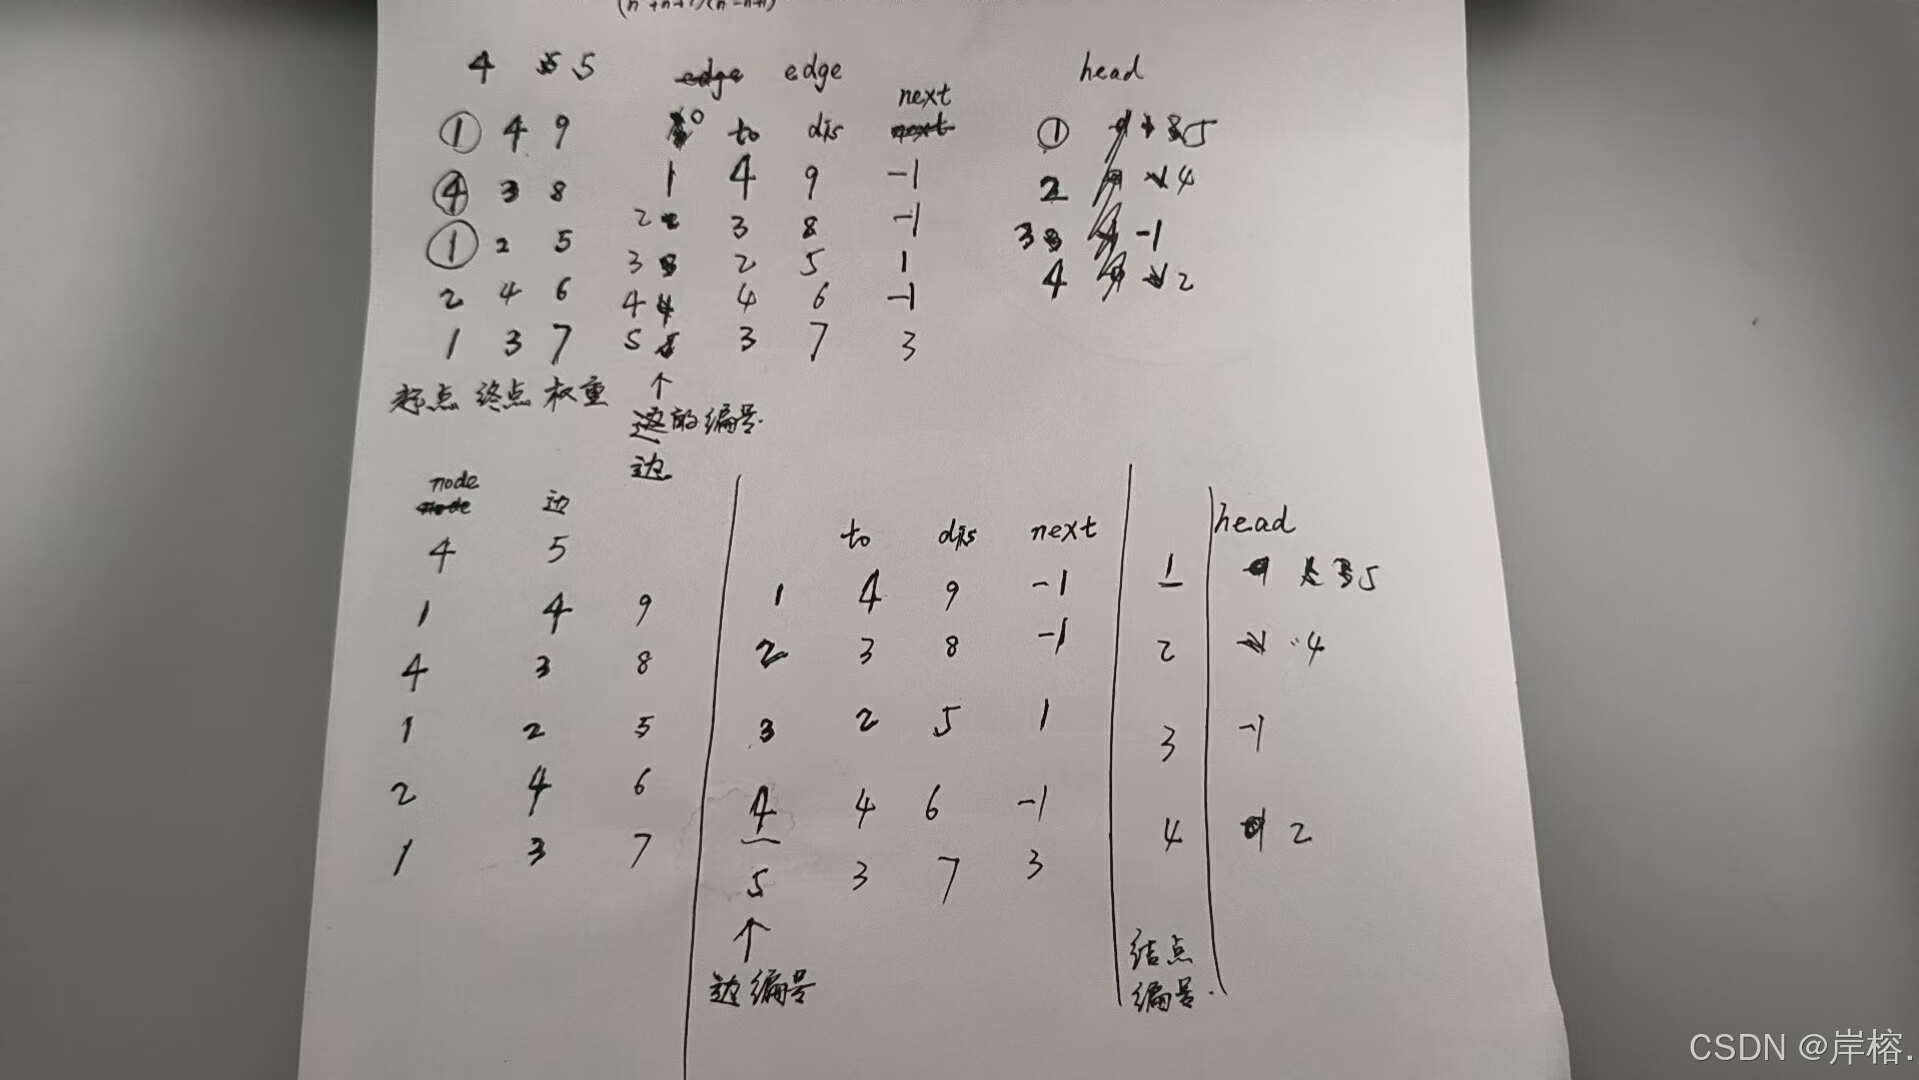 4 5 5 edge edge head
next
① 4 9 0 to dis next ① 5
④ 3 8 1 4 9 -1 2 4
① 2 5 2 3 8 -1 3 -1
2 4 6 3 2 5 1 4 2
1 3 7 4 4 4 6 -1
5 3 7 3
起点 终点 权重 ↑
边的编号.
边
node 边
node
4 5 to dis next head
1 4 9 1 4 9 -1 1 5
4 3 8 2 3 8 -1 2 4
1 2 5 3 2 5 1 3 -1
2 4 6 4 4 6 -1 4 2
1 3 7 5 3 7 3
↑
边编号 结点
编号.
CSDN @岸榕.